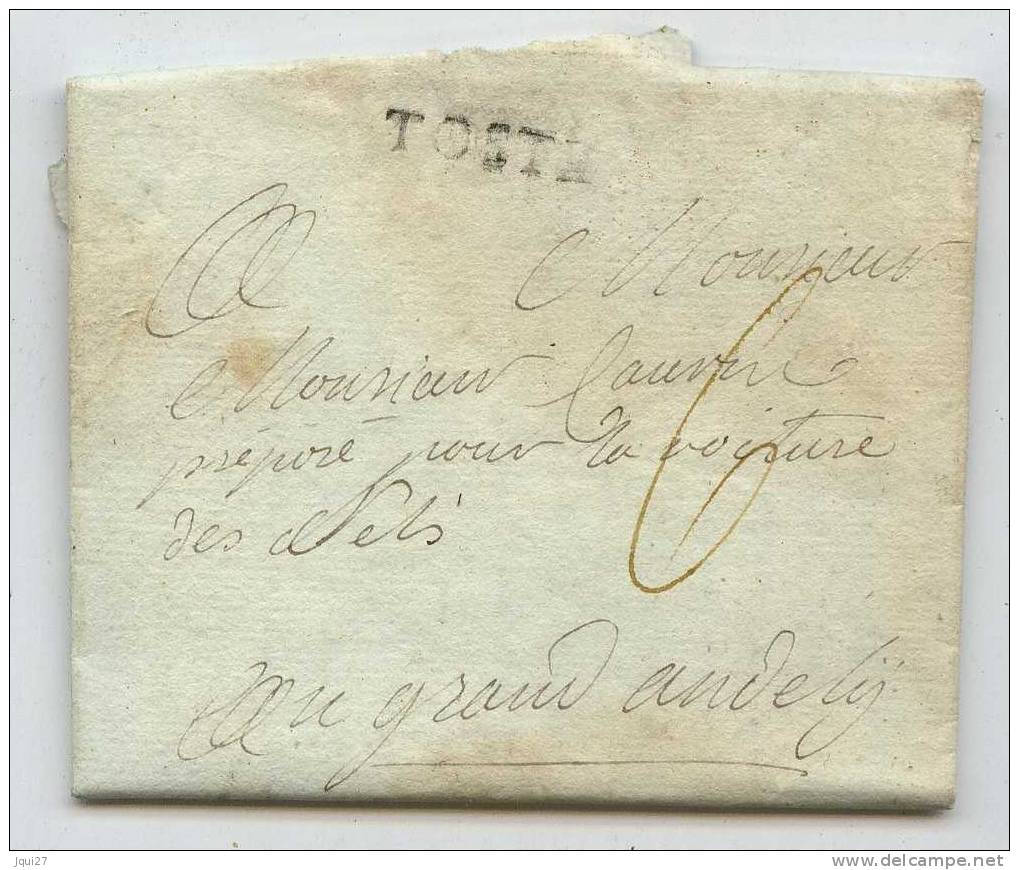 TOSTE
A Monsieur
Monsieur
préposé pour la voiture
des Sels
6
Au grand andely
Jqui27
www.delcampe.net